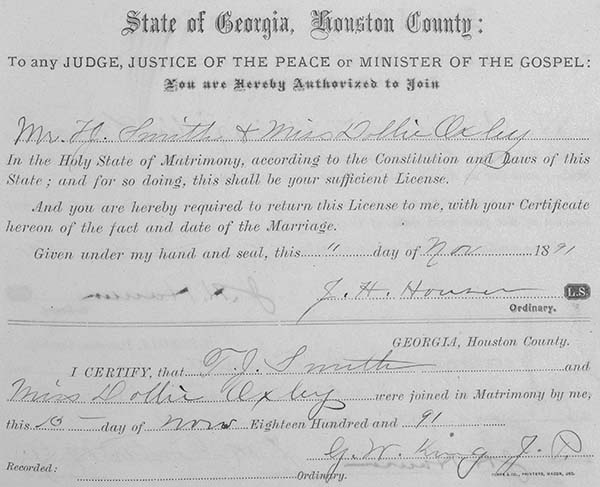 State of Georgia, Houston County:
To any JUDGE, JUSTICE OF THE PEACE or MINISTER OF THE GOSPEL:
You are Hereby Authorized to Join
Mr. Smith & Miss Dollie Oxley
In the Holy State of Matrimony, according to the Constitution and Laws of this
State; and for so doing, this shall be your sufficient License.
And you are hereby required to return this License to me, with your Certificate
hereon of the fact and date of the Marriage.
Given under my hand and seal, this " day of Nov 1891
J. H. Houser L.S.
Ordinary.
GEORGIA, Houston County.
I CERTIFY, that T. J. Smith and
Miss Dollie Oxley were joined in Matrimony by me,
this 15 day of Nov Eighteen Hundred and 91
G. W. King J. P.
Recorded: Ordinary.